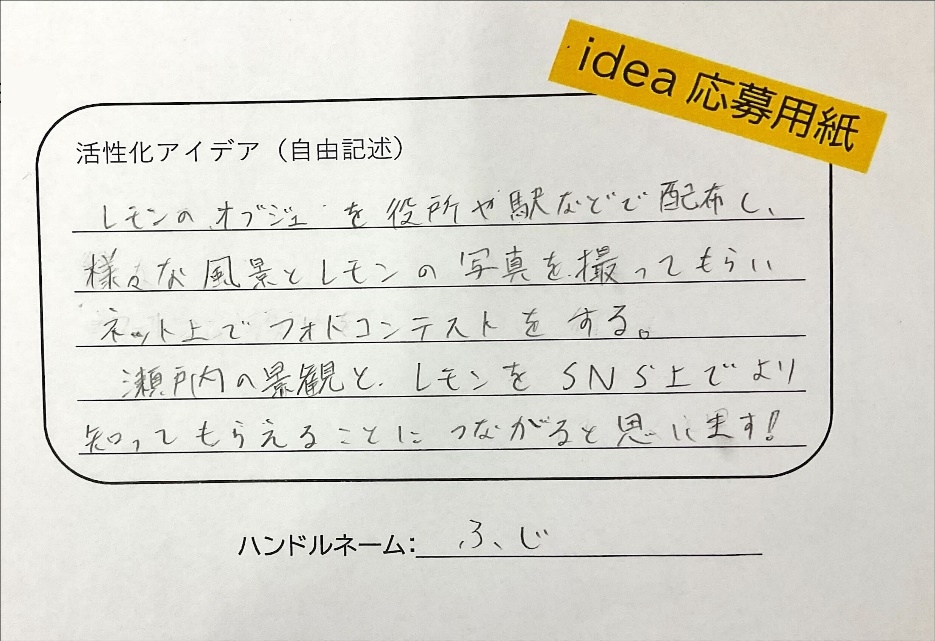 idea 応募用紙
活性化アイデア（自由記述）
レモンのオブジェを役所や駅などで配布し、
様々な風景とレモンの写真を撮ってもらい
ネット上でフォトコンテストをする。
瀬戸内の景観と、レモンをSNS上でより
知ってもらえることにつながると思います!
ハンドルネーム:ふじ